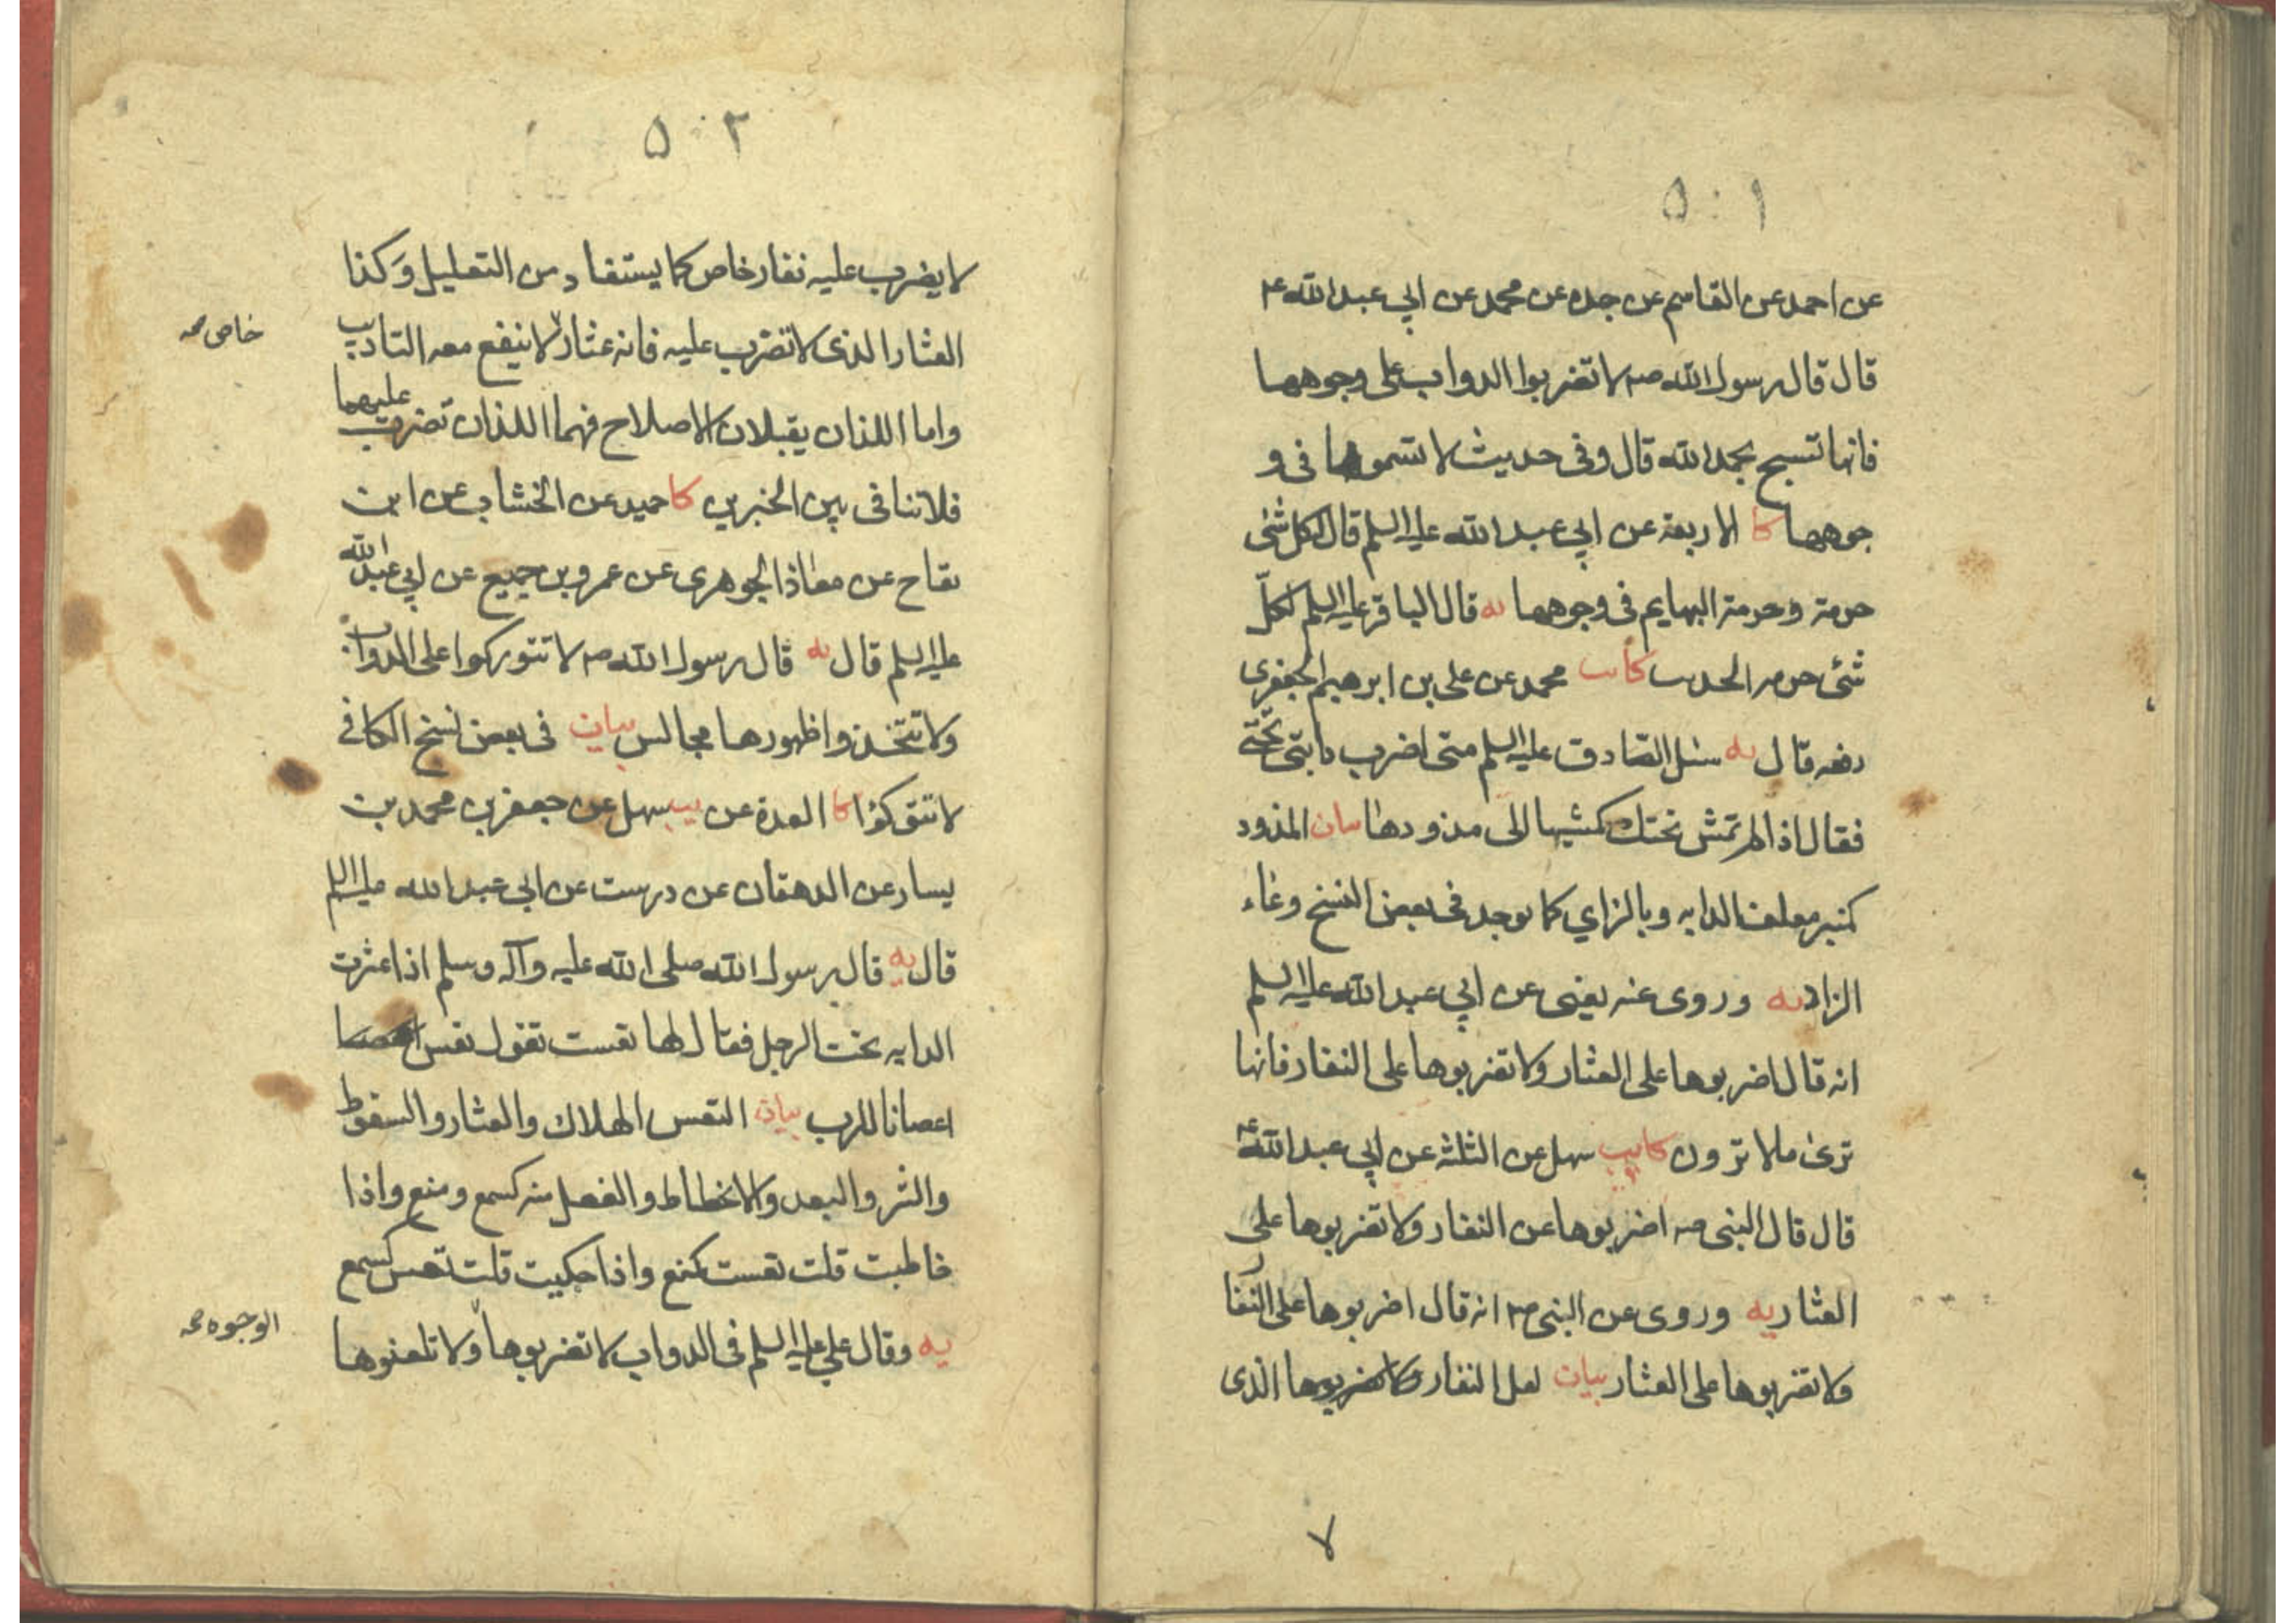 ٥٠١
عن احمد عن القاسم عن جده عن محمد عن ابي عبد الله ع
قال قال رسول الله ص لا تضربوا الدواب على وجوهها
فانها تسبح بحمد الله قال وفى حديث لا تسموها فى و
جوهها كا الاربعة عن ابي عبد الله عليه السلم قال لكل شئ
حرمة وحرمة البهايم فى وجوهها يه قال الباقر عليه السلم لكلّ
شئ حرمه الحديث كا يب محمد عن على بن ابرهيم الجعفرى
رفعه قال يه سئل الصّادق عليه السلم متى اضرب دابتى تحتى
فقال اذا لم تمش تحتك كمشيها الى مذودها بيان المذود
كمنبر معلف الدابه وبالزاي كما يوجد فى بعض النسخ وعاء
الزاد يه وروى عنه يعنى عن ابي عبد الله عليه السلم
انه قال اضربوها على العثار ولا تضربوها على النفار فانها
ترى ما لا ترون كا يب سهل عن الثلثة عن ابي عبد الله ع
قال قال النبى ص اضربوها عن النفار ولا تضربوها على
العثار يه وروى عن النبى ص انه قال اضربوها على النفار
ولا تضربوها على العثار بيان لعل النفار الذى
٧
٥٠٢
لا يضرب عليه نفار خاص كما يستفاد من التعليل وَكذا
العثار الذى لا تضرب عليه فانه عثار لا ينفع معه التاديب
خاص صح
واما اللذان يقبلان الاصلاح فهما اللذان تضرب عليهما
فلا تنافى بين الخبرين كا حميد عن الخشاب عن ابن
بقاح عن معاذ الجوهرى عن عمرو بن جميع عن ابي عبد الله
عليه السلم قال يه قال رسول الله ص لا تتوركوا على الدواب
ولا تتخذوا ظهورها مجالس بيان فى بعض نسخ الكافى
لا تتوكؤا كا العدة عن يب سهل عن جعفر بن محمد بن
يسار عن الدهقان عن درست عن ابي عبد الله عليه السلم
قال يه قال رسول الله صلى الله عليه وآله وسلم اذا عثرت
الدابه تحت الرجل فقال لها تعست تقول تعس
اعصانا للرب بيان التعس الهلاك والعثار والسقوط
والشر والبعد والانحطاط والفعل منه كسمع ومنع واذا
خاطبت قلت تعست كمنع واذا حكيت قلت تعس كسمع
يه وقال علي عليه السلم فى الدواب لا تضربوها ولا تلعنوها
الوجوه صح